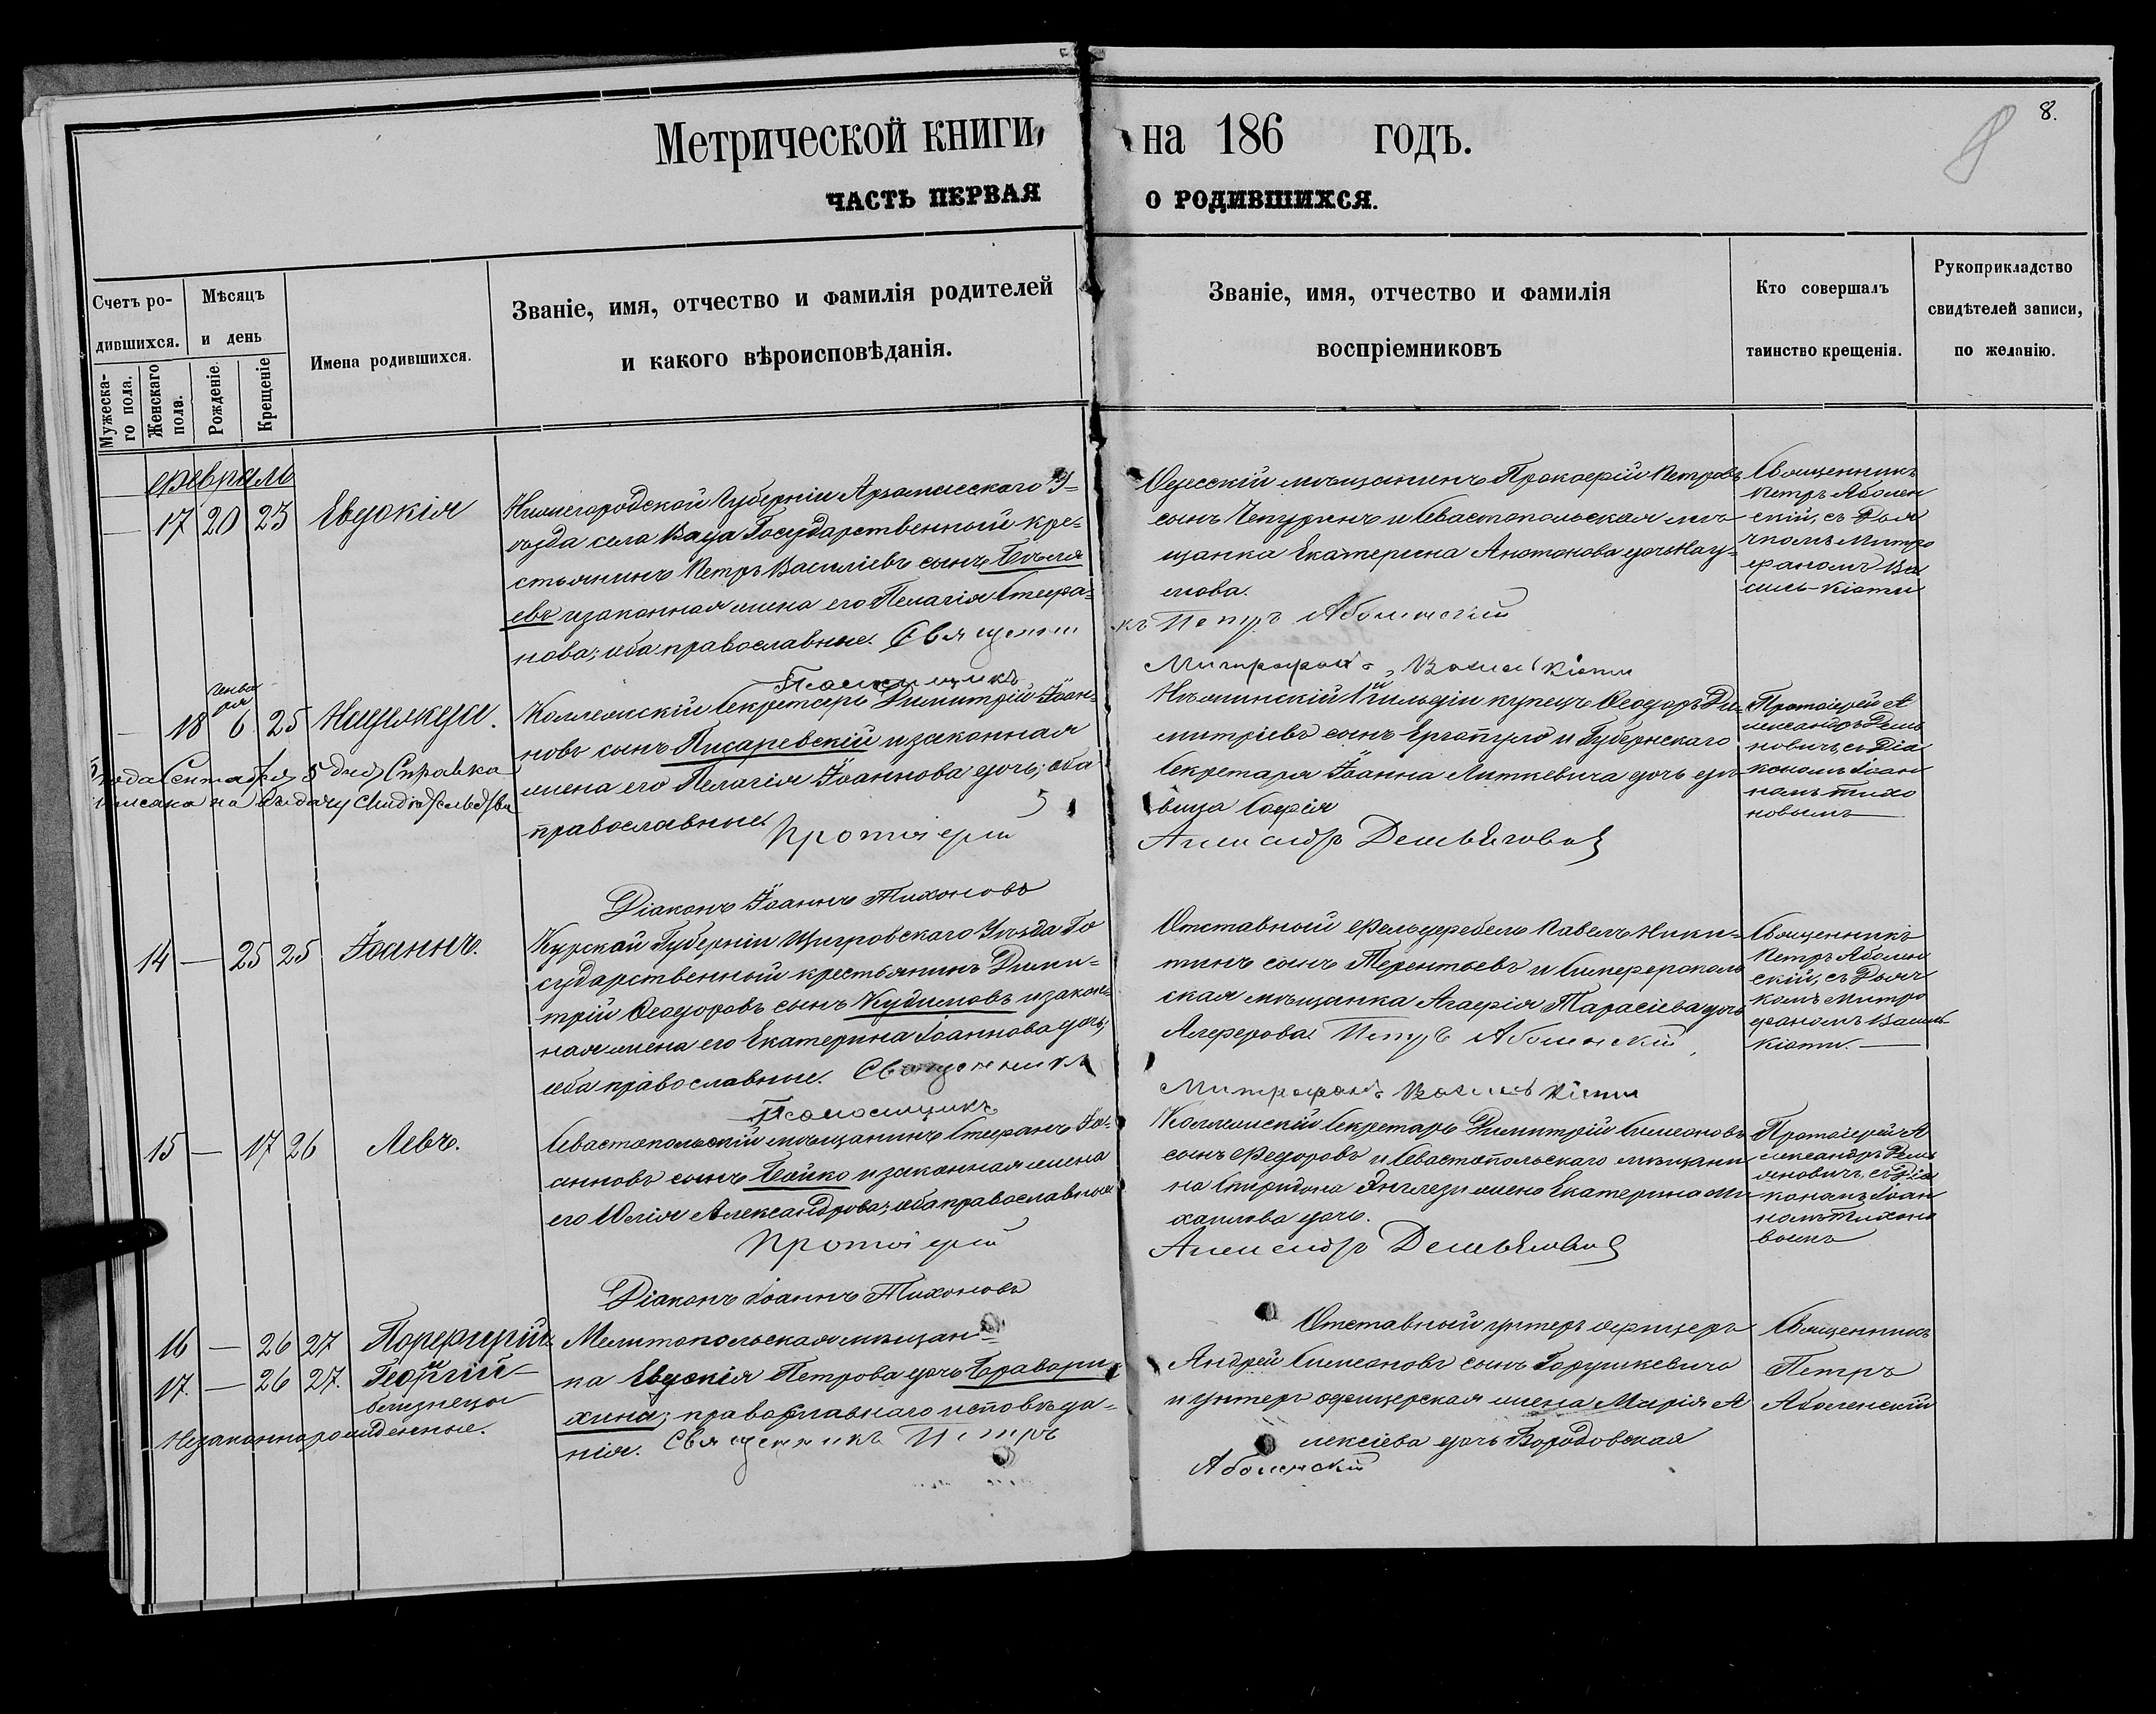 8.
8
Метрической книги, на 186 годъ.
ЧАСТЬ ПЕРВАЯ О РОДИВШИХСЯ.
Счетъ ро-
дившихся.
Мужеска-
го пола.
Женскаго
пола.
Мѣсяцъ
и день
Рожденіе.
Крещеніе
Имена родившихся.
Званіе, имя, отчество и фамилія родителей
и какого вѣроисповѣданія.
Званіе, имя, отчество и фамилія
воспріемниковъ
Кто совершалъ
таинство крещенія.
Рукоприкладство
свидѣтелей записи,
по желанію.
Февраль
— 17 20 23 Евдокія
Нижегородской Губерніи Арзамасскаго У-
ѣзда села Вада Государственный кре-
стьянинъ Петръ Василіевъ сынъ Бѣля
евъ и законная жена его Пелагія Стефа-
нова; оба православные. Священни
Одесскій мѣщанинъ Прокофій Петровъ
сынъ Чепуринъ и Севастопольская мѣ
щанка Екатерина Антонова дочь Нау-
мова.
къ Петръ Аболенскій
Митрофанъ Василькіоти
Священникъ
Петръ Аболен
скій, съ Дья
чкомъ Митро
фаномъ Ва
силь-кіоти
Генва
ря
— 18 6 25 Надежда.
Коллежскій Секретарь Димитрій Іоан-
новъ сынъ Писаревскій и законная
жена его Пелагія Іоаннова дочь; оба
православные. Протоіерей
Нѣжинскій Гильдіи купецъ Ѳеодоръ Ди-
митріевъ сынъ Ергопуло и Губернскаго
Секретаря Іоанна Литкевича дочь дѣ
вица Софія
Александръ Демьяновичъ
Протоіерей А
лександръ Демья
новичъ съ Діа
кономъ Іоан
номъ Тихо
новымъ
года Сентября 5 дня Справка
на выдачу Свидѣтельства
Діаконъ Іоаннъ Тихоновъ
14 — 25 25 Іоаннъ.
Курской Губерніи Щигровскаго Уѣзда Го
сударственный крестьянинъ Дими-
трій Ѳеодоровъ сынъ Кудимовъ и закон-
ная жена его Екатерина Іоаннова дочь;
оба православные. Священникъ
Отставной Фельдфебель Павелъ Ники-
тинъ сынъ Терентьевъ и Симферополь
ская мѣщанка Агафія Тарасіева дочь
Алферова. Петръ Аболенскій
Митрофанъ Василькіоти
Священникъ
Петръ Аболен
скій, съ Дьяч
комъ Митро
фаномъ Василь
кіоти.
15 — 17 26 Левъ.
Севастопольскій мѣщанинъ Стефанъ Іо-
анновъ сынъ Бойко и законная жена
его Юлія Александрова; оба православные
Протоіерей
Коллежскій Секретарь Димитрій Симеоновъ
сынъ Федоровъ и Севастопольскаго мѣщани
на Спиридона Энглези жена Екатерина Ми
хаилова дочь.
Александръ Демьяновичъ
Протоіерей А
лександръ Демь
яновичъ съ Діа
кономъ Іоан
номъ Тихоно
вымъ
Діаконъ Іоаннъ Тихоновъ
16 — 26 27 Порфирій и
17. — 26 27. Георгій—
близнецы
Незаконнорожденные.
Мелитопольская мѣщан-
ка Евдокія Петрова дочь
хина; православнаго исповѣда-
нія. Священникъ Петръ
Отставный унтеръ офицеръ
Андрей Симеоновъ сынъ Горушкевичъ
и унтеръ офицерская жена Марія А
лексіева дочь Бородовская
Аболенскій
Священникъ
Петръ
Аболенскій